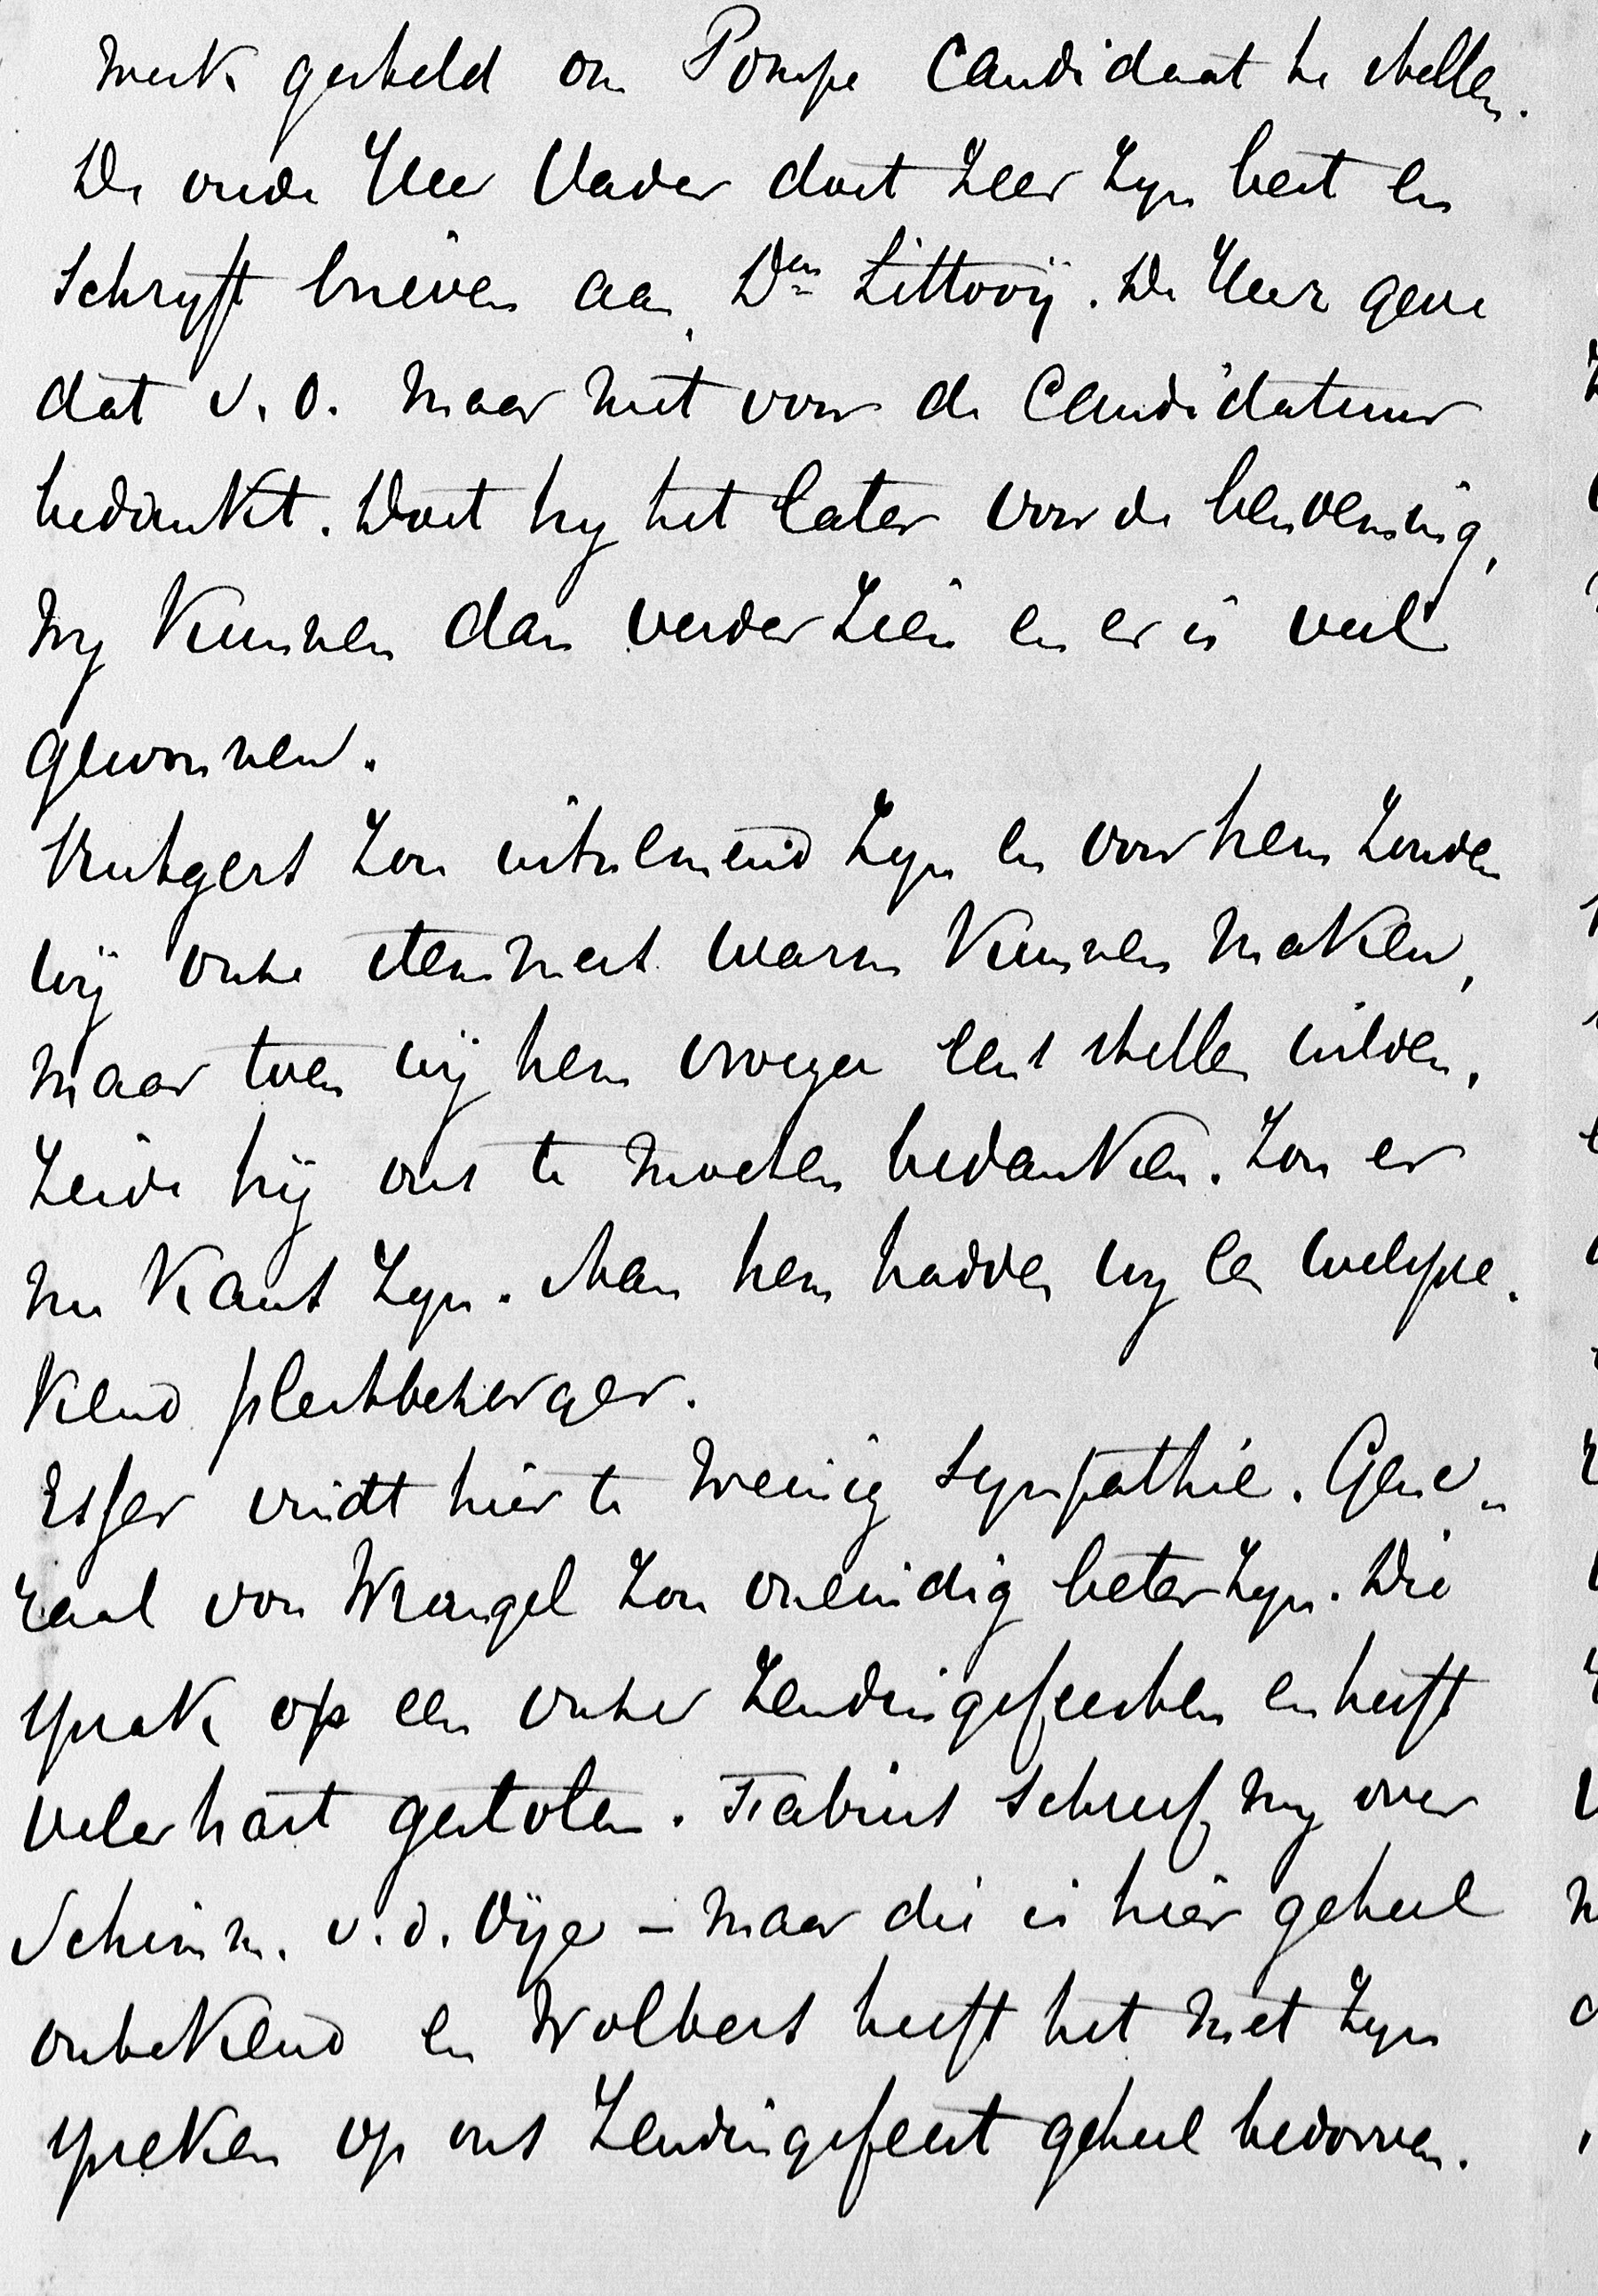 werk gesteld om Pompe Candidaat te stellen.
De oude Heer Vader doet zeer zyn best en
schryft brieven aan Den Littooij. De Heer geve
dat v. O. maar niet voor de Candidatuur
bedankt. Doet hy het later voor de benoeming,
wy kunnen dan verder zien en er is veel
gewonnen.
Rutgers zou uitnemend zyn en voor hem zouden
wij onze stemmers warm kunnen maken,
maar toen wij hem vroeger eens stellen wilden,
zeide hij ons te moeten bedanken. Zou er
nu kans zyn. Aan hem hadden wy een welspre-
kend pleitbezorger.
Esser vindt hier te weinig sympathie. Gene-
raal von Wrangel zou oneindig beter zyn. Die
sprak op een onzer Zendingsfeesten en heeft
veler hart gestolen. Fabius schreef my over
Schimm. v. d. Oije – maar die is hier geheel
onbekend en Wolbers heeft het met zyn
spreken op ons Zendingsfeest geheel bedorven.